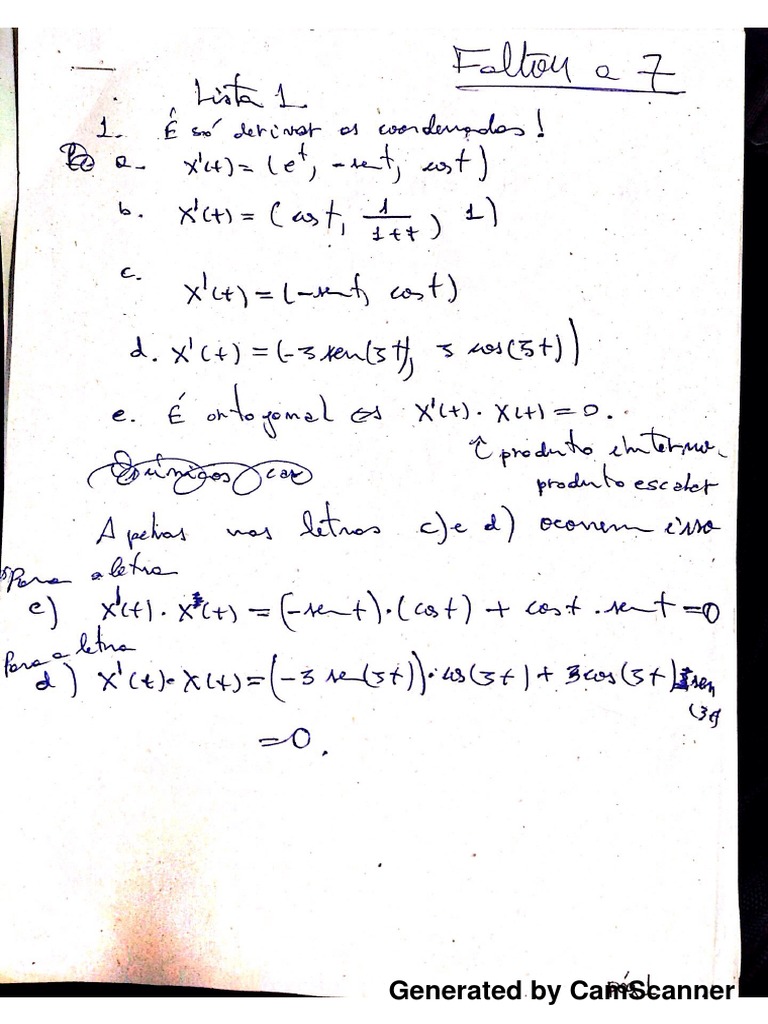 Faltou a 7
Lista 1
1. É só derivar as coordenadas!
a- X'(t) = (e^t, -sent, cost)
b. X'(t) = (cost, 1/(1+t), 1)
c. X'(t) = (-sent, cost)
d. X'(t) = (-3 sen(3t), 3 cos(3t))
e. É ortogonal ⇔ X'(t) . X(t) = 0.
↑ produto interno.
produto escalar
Apenas nas letras c) e d) ocorrem isso
Para a letra
c) X'(t) . X(t) = (-sent).(cost) + cost . sent = 0
Para a letra
d) X'(t) . X(t) = (-3 sen(3t)).cos(3t) + 3cos(3t) sen
(3t)
= 0.
Generated by CamScanner